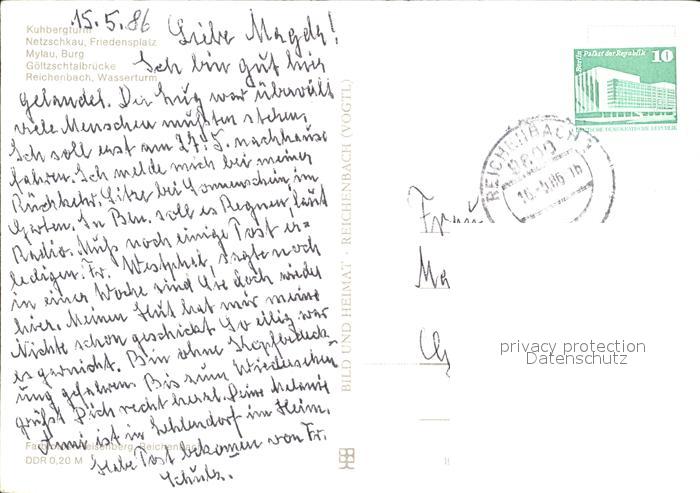 15.5.86 Liebe Magda!
Kuhbergturm
Netzschkau, Friedensplatz
Mylau, Burg
Göltzschtalbrücke
Reichenbach, Wasserturm
Ich bin gut hier
gelandet. Der Zug war überfüllt
viele Menschen mußten stehen,
Ich soll erst am 27.5. nachhause
fahren. Ich melde mich bei meiner
Rückkehr. Sitze bei Sonnenschein im
Garten. In Bln. soll es Regnen, laut
Radio. Muß noch einige Post er-
ledigen. Fr. Westphal, sagte noch
in einer Woche sind Sie doch wieder
hier. Meinen Hut hat mir meine
Nichte schon geschickt. So eilig war
es garnicht. Bin ohne Kopfbedeck-
ung gefahren. Bis zum Wiedersehen
grüßt Dich recht herzl. Deine Melanie
Ammi ist in Zehlendorf im Heim.
Habe Post bekomen von Fr.
Schulz.
DDR 0,20 M
BILD UND HEIMAT · REICHENBACH (VOGTL)
Berlin Palast der Republik 10
DEUTSCHE DEMOKRATISCHE REPUBLIK
REICHENBACH
9800
16.-5.86-16
Frau
Ma
privacy protection
Datenschutz